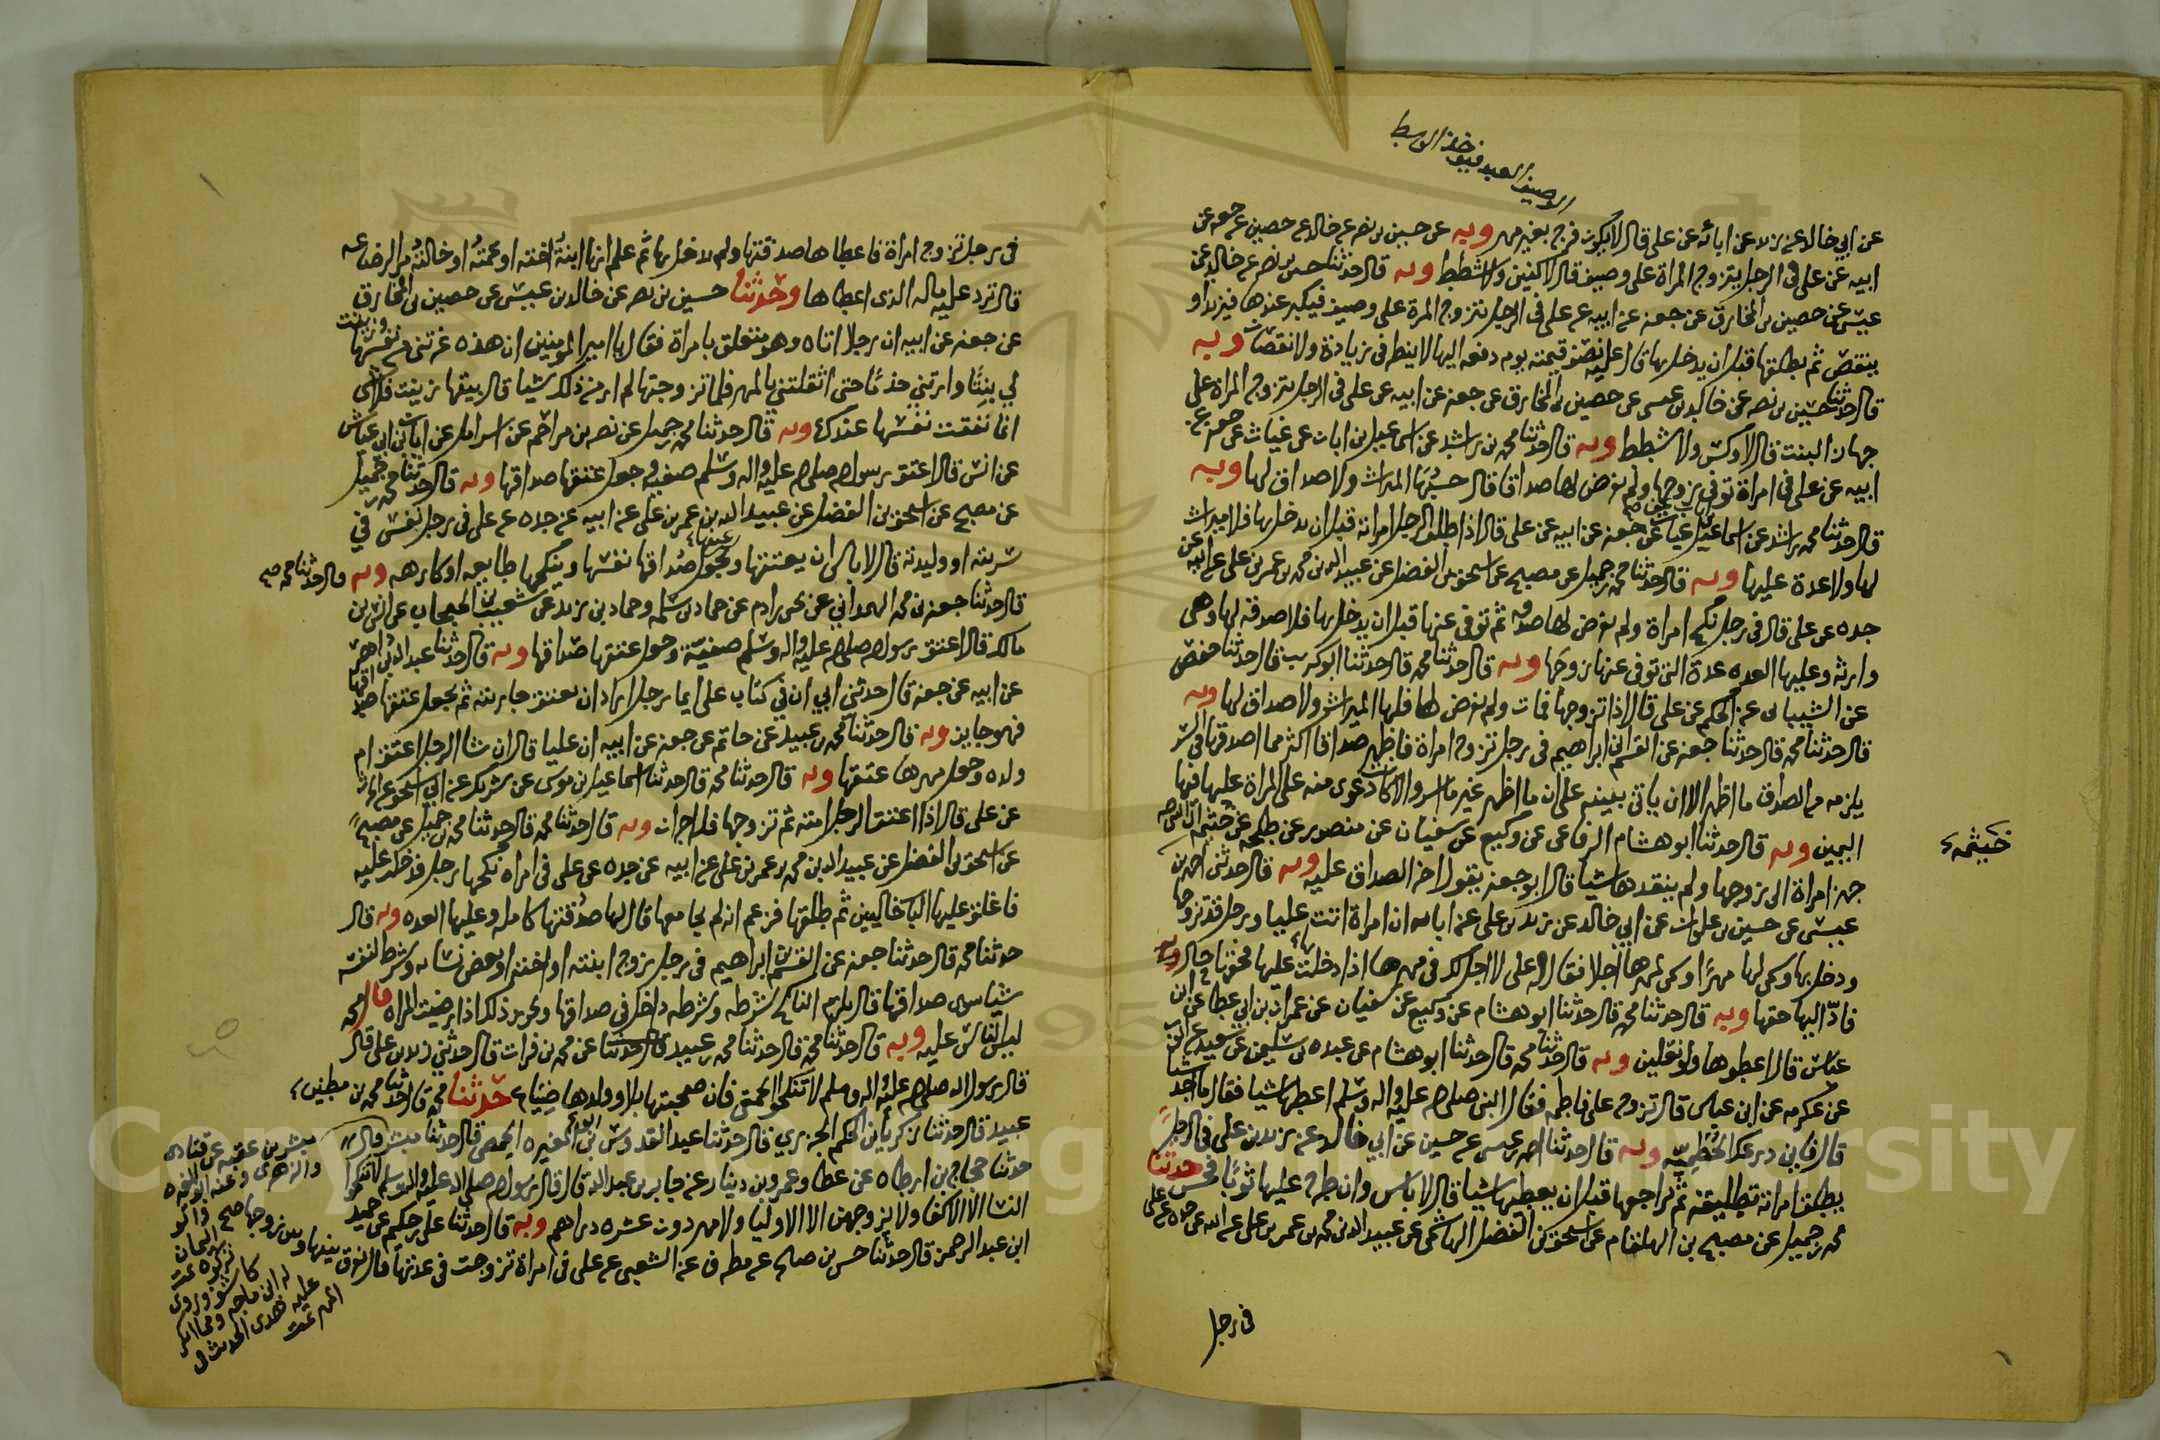 الوصيف العبد فيؤخذ الوسط
عن ابي خالد عن زيد عن ابائه عن علي قال لا يكون فرج بغير مهر وبه عن حسين بن نصر عن خالد عن حصين عن جعفر عن
ابيه عن علي في الرجل يتزوج المراة على وصيف قال لا وكس ولا شطط وبه قال حدثنا حسين بن نصر عن خالد بن
عيسى عن حصين بن المخارق عن جعفر عن ابيه عن علي في الرجل يتزوج المرة على وصيف فيكبر عندها فيزيد او
ينقص ثم يطلقها قبل ان يدخل بها قال عليه نصف قيمته يوم دفعه اليها لا ينظر في زيادة ولا نقصان وبه
قال حدثنا حسين بن نصر عن خالد بن عيسى عن حصين بن المخارق عن جعفر عن ابيه عن علي في الرجل يتزوج المراة على
جهاز البيت قال لا وكس ولا شطط وبه قال حدثنا محمد بن راشد عن اسماعيل بن ابان عن غياث عن جعفر عن
ابيه عن علي في امراة توفي زوجها ولم يفرض لها صداقا قال حسبها الميراث ولا صداق لها وبه
قال حدثنا محمد بن راشد عن اسماعيل عن غياث عن جعفر عن ابيه عن علي قال اذا طلق الرجل امراته قبل ان يدخل بها فلا ميراث
لها ولا عدة عليها وبه قال حدثنا محمد بن جميل عن مصبح عن اسحق بن الفضل عن عبيد الله بن محمد بن عمر بن علي عن ابيه عن
جده عن علي قال في رجل نكح امراة ولم يفرض لها صدقة ثم توفي عنها قبل ان يدخل بها فلا صدقة لها وهي
وارثه وعليها العده عدة التي توفى عنها زوجها وبه قال حدثنا محمد قال حدثنا ابو كريب قال حدثنا حفص
عن الشيباني عن الحكم عن علي قال اذا تزوجها فمات ولم يفرض لها فلها الميراث ولا صداق لها وبه
قال حدثنا محمد قال حدثنا جعفر عن القسم بن ابراهيم في رجل تزوج امراة فاظهر صداقا اكثر مما اصدقها في السر
يلزمه من الصداق ما اظهر الا ان ياتي ببينه على ان ما اظهر غير ما اسر والا كان دعوى منه على المراة عليها فيها
اليمين وبه قال حدثنا ابو هشام الرفاعي عن وكيع عن سفيان عن منصور عن طلحه عن خيثمه ان رجلا
خيثمه
جهز امراة الى زوجها ولم ينقدها شيا قال ابو جعفر يقول اخر الصداق عليه وبه قال حدثني احمد بن
عيسى عن حسين بن علوان عن ابي خالد عن زيد بن علي عن ابايه ان امراة اتت عليا ورجل قد تزوجها
ودخل بها وسمى لها مهرا وسمى لمهرها اجلا فقال له علي لا اجل لك في مهرها اذا دخلت بها فحقها حال
فادّ اليها حقها وبه قال حدثنا محمد قال حدثنا ابو هشام عن وكيع عن سفيان عن عمران بن ابي عطا عن ابن
عباس قال اعطوها ولو نعلين وبه قال حدثنا محمد قال حدثنا ابو هشام عن عبده بن سليمن عن سعيد عن ايوب
عن عكرمه عن ابن عباس قال تزوج علي فاطمه فقال النبي صلى الله عليه واله وسلم اعطها شيا فقال ما اجد شيا
قال فاين درعك الحطميه وبه قال حدثنا احمد بن عيسى عن حسين عن ابي خالد عن زيد بن علي في الرجل
يطلق امراته تطليقه ثم يراجعها قبل ان يعطيها شيا قال لا باس وان طرح عليها ثوبا فحسن حدثنا
محمد بن جميل عن مصبح بن الهلقام عن اسحق بن الفضل الهاشمي عن عبيد الله بن محمد بن عمر بن علي عن ابيه عن جده عن علي
في رجل
في رجل تزوج امراة فاعطاها صدقتها ولم يدخل بها ثم علم انها ابنة اخته او عمته او خالته من الرضاعه
قال ترد عليه ماله الذي اعطاها وحدثنا حسين بن نصر عن خالد بن عيسى عن حصين بن المخارق
عن جعفر عن ابيه ان رجلا اتاه وهو متعلق بامراة فقال يا امير المومنين ان هذه غرتني من نفسها وزينت
لي بيتا وارتني خدما حتى اثقلتني بالمهر فلما تزوجتها لم ار من ذلك شيا قال بيتها زينت فلا ارى
انما نفقت نفسها عندك وبه قال حدثنا محمد بن جميل عن نصر بن مزاحم عن اسرايل عن ابان بن ابي عياش
عن انس قال اعتق رسول الله صلى الله عليه واله وسلم صفيه وجعل عتقها صداقها وبه قال حدثنا محمد بن جميل
عن مصبح عن اسحق بن الفضل عن عبيد الله بن عمر بن علي عن ابيه عن جده عن علي في رجل نفس في
سريته او وليدته قال لا باس ان يعتقها ويجعل عتقها صداقها نفسها وينكحها طايعه او كارهه وبه قال حدثنا محمد صح
قال حدثنا جعفر بن محمد الهمداني عن يحيى بن ادم عن حماد بن سلمه وحماد بن زيد عن شعيب بن الحبحاب عن انس بن
مالك قال اعتق رسول الله صلى الله عليه واله وسلم صفية وجعل عتقها صداقها وبه قال حدثنا عبد الله بن داهر
عن ابيه عن جعفر قال حدثني ابي ان في كتاب علي ايما رجل اراد ان يعتق جاريته ثم يجعل عتقها صداقها
فهو جايز وبه قال حدثنا محمد بن عبيد عن حاتم عن جعفر عن ابيه ان عليا قال ان شا الرجل اعتق ام
ولده وجعل مهرها عتقها وبه قال حدثنا محمد قال حدثنا اسماعيل بن موسى عن شريك عن ابي اسحق عن الحارث
عن علي قال اذا اعتق الرجل امته ثم تزوجها فله اجران وبه قال حدثنا محمد قال حدثنا محمد بن جميل عن مصبح
عن اسحق بن الفضل عن عبيد الله بن محمد بن عمر بن علي عن ابيه عن جده عن علي في امراه نكحها رجل فدخل عليه
فاغلق عليها الباب خاليين ثم طلقها فزعم انه لم يجامعها قال لها صدقتها كامله وعليها العده وبه قال
حدثنا محمد قال حدثنا جعفر عن القسم بن ابراهيم في رجل يزوج ابنته او اخته او بعض نسايه وشرط لنفسه
شيا سوى صداقها قال يلزم الناكح شرطه وشرطه داخل في صداقها ويجوز ذلك اذا رضيت المراه قال محمد
ليس الناس عليه وبه قال حدثنا محمد قال حدثنا محمد بن عبيد قال حدثنا عن محمد بن فرات قال حدثني زيد بن علي قال
قال رسول الله صلى الله عليه واله وسلم لا تنكحوا الحمقى فان صحبتها بلا وولدها ضياع حدثنا محمد قال حدثنا محمد بن مطين
عبيد قال حدثنا زكريا بن الحكم الجزري قال حدثنا عبد القدوس ابو المغيره الحمصي قال حدثنا مبشر قال
حدثنا حجاج بن ارطاه عن عطا وعمرو بن دينار عن جابر بن عبد الله قال قال رسول الله صلى الله عليه واله وسلم لا تنكحوا
النسا الا الاكفا ولا يزوجهن الا الاوليا ولا مهر دون عشره دراهم وبه قال حدثنا علي بن حكيم عن حميد
ابن عبد الرحمن قال حدثنا حسن بن صالح عن مطرف عن الشعبي عن علي في امراة تزوجت في عدتها قال يفرق بينها وبين زوجها